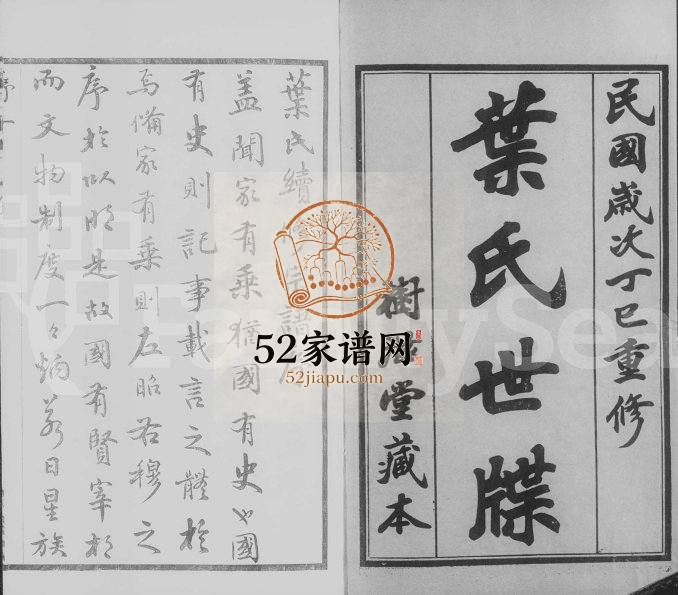 民國歲次丁巳重修
葉氏世牒
樹堂藏本
葉氏續譜
蓋聞家有乘猶國有史也國
有史則記事載言之體於
焉備家有乘則左昭右穆之
序於以明是故國有賢宰相
而文物制度一々炳若日星族
52家谱网
52jiapu.com